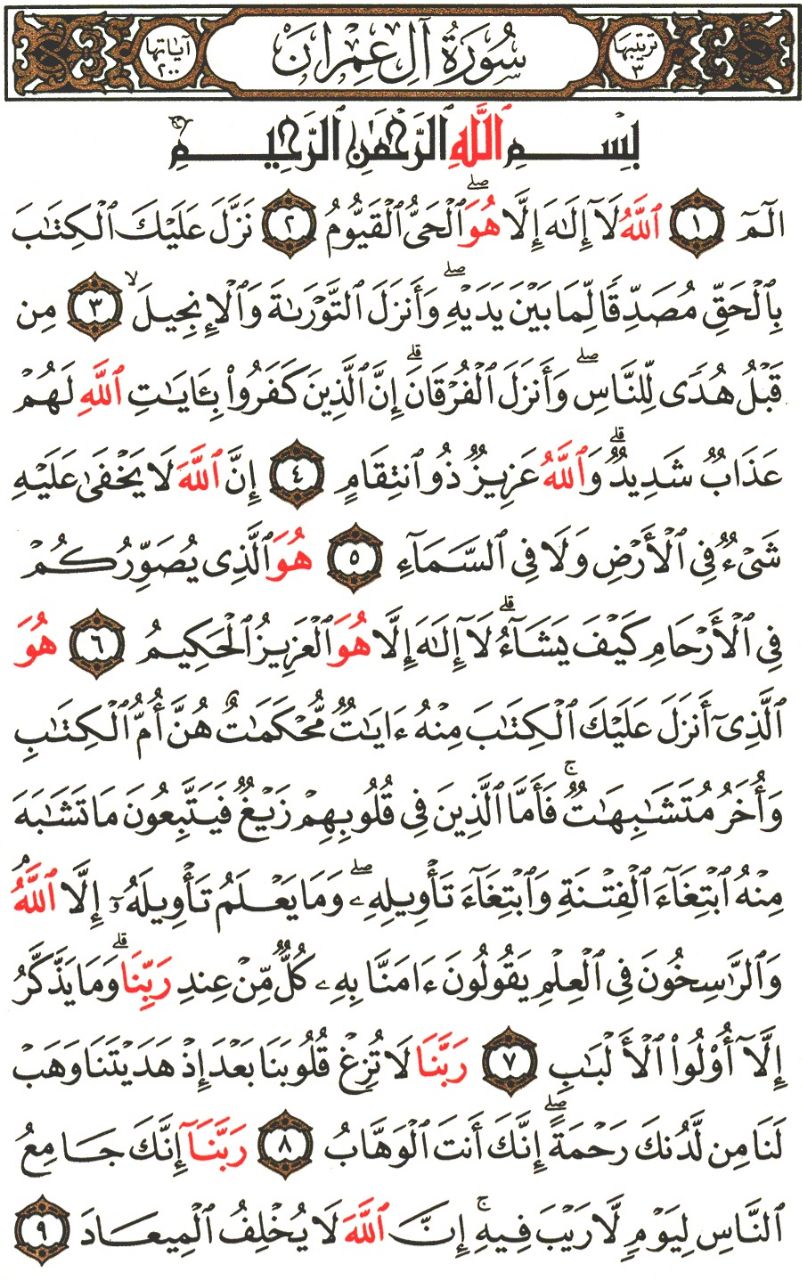 ترتيبها ٣ سُورَةُ آلِ عِمْرَان آياتها ٢٠٠
بِسْمِ ٱللَّهِ ٱلرَّحْمَٰنِ ٱلرَّحِيمِ
الٓمٓ ١ ٱللَّهُ لَآ إِلَٰهَ إِلَّا هُوَۖ ٱلْحَىُّ ٱلْقَيُّومُ ٢ نَزَّلَ عَلَيْكَ ٱلْكِتَٰبَ
بِٱلْحَقِّ مُصَدِّقًا لِّمَا بَيْنَ يَدَيْهِۖ وَأَنزَلَ ٱلتَّوْرَىٰةَ وَٱلْإِنجِيلَۙ ٣ مِن
قَبْلُ هُدًى لِّلنَّاسِۖ وَأَنزَلَ ٱلْفُرْقَانَۗ إِنَّ ٱلَّذِينَ كَفَرُوا۟ بِـَٔايَٰتِ ٱللَّهِ لَهُمْ
عَذَابٌ شَدِيدٌۗ وَٱللَّهُ عَزِيزٌ ذُو ٱنتِقَامٍ ٤ إِنَّ ٱللَّهَ لَا يَخْفَىٰ عَلَيْهِ
شَىْءٌ فِى ٱلْأَرْضِ وَلَا فِى ٱلسَّمَآءِ ٥ هُوَ ٱلَّذِى يُصَوِّرُكُمْ
فِى ٱلْأَرْحَامِ كَيْفَ يَشَآءُۗ لَآ إِلَٰهَ إِلَّا هُوَ ٱلْعَزِيزُ ٱلْحَكِيمُ ٦ هُوَ
ٱلَّذِىٓ أَنزَلَ عَلَيْكَ ٱلْكِتَٰبَ مِنْهُ ءَايَٰتٌ مُّحْكَمَٰتٌ هُنَّ أُمُّ ٱلْكِتَٰبِ
وَأُخَرُ مُتَشَٰبِهَٰتٌۚ فَأَمَّا ٱلَّذِينَ فِى قُلُوبِهِمْ زَيْغٌ فَيَتَّبِعُونَ مَا تَشَٰبَهَ
مِنْهُ ٱبْتِغَآءَ ٱلْفِتْنَةِ وَٱبْتِغَآءَ تَأْوِيلِهِۦۖ وَمَا يَعْلَمُ تَأْوِيلَهُۥٓ إِلَّا ٱللَّهُ
وَٱلرَّٰسِخُونَ فِى ٱلْعِلْمِ يَقُولُونَ ءَامَنَّا بِهِۦ كُلٌّ مِّنْ عِندِ رَبِّنَاۗ وَمَا يَذَّكَّرُ
إِلَّآ أُو۟لُوا۟ ٱلْأَلْبَٰبِ ٧ رَبَّنَا لَا تُزِغْ قُلُوبَنَا بَعْدَ إِذْ هَدَيْتَنَا وَهَبْ
لَنَا مِن لَّدُنكَ رَحْمَةًۖ إِنَّكَ أَنتَ ٱلْوَهَّابُ ٨ رَبَّنَآ إِنَّكَ جَامِعُ
ٱلنَّاسِ لِيَوْمٍ لَّا رَيْبَ فِيهِۚ إِنَّ ٱللَّهَ لَا يُخْلِفُ ٱلْمِيعَادَ ٩